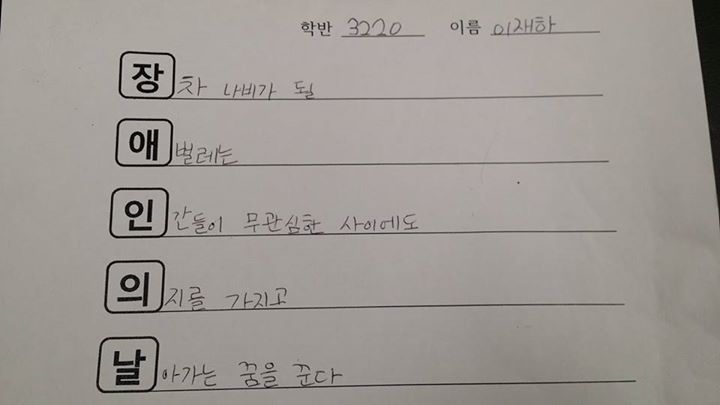 학반 3220 이름 이재하
장차 나비가 될
애벌레는
인간들이 무관심한 사이에도
의지를 가지고
날아가는 꿈을 꾼다